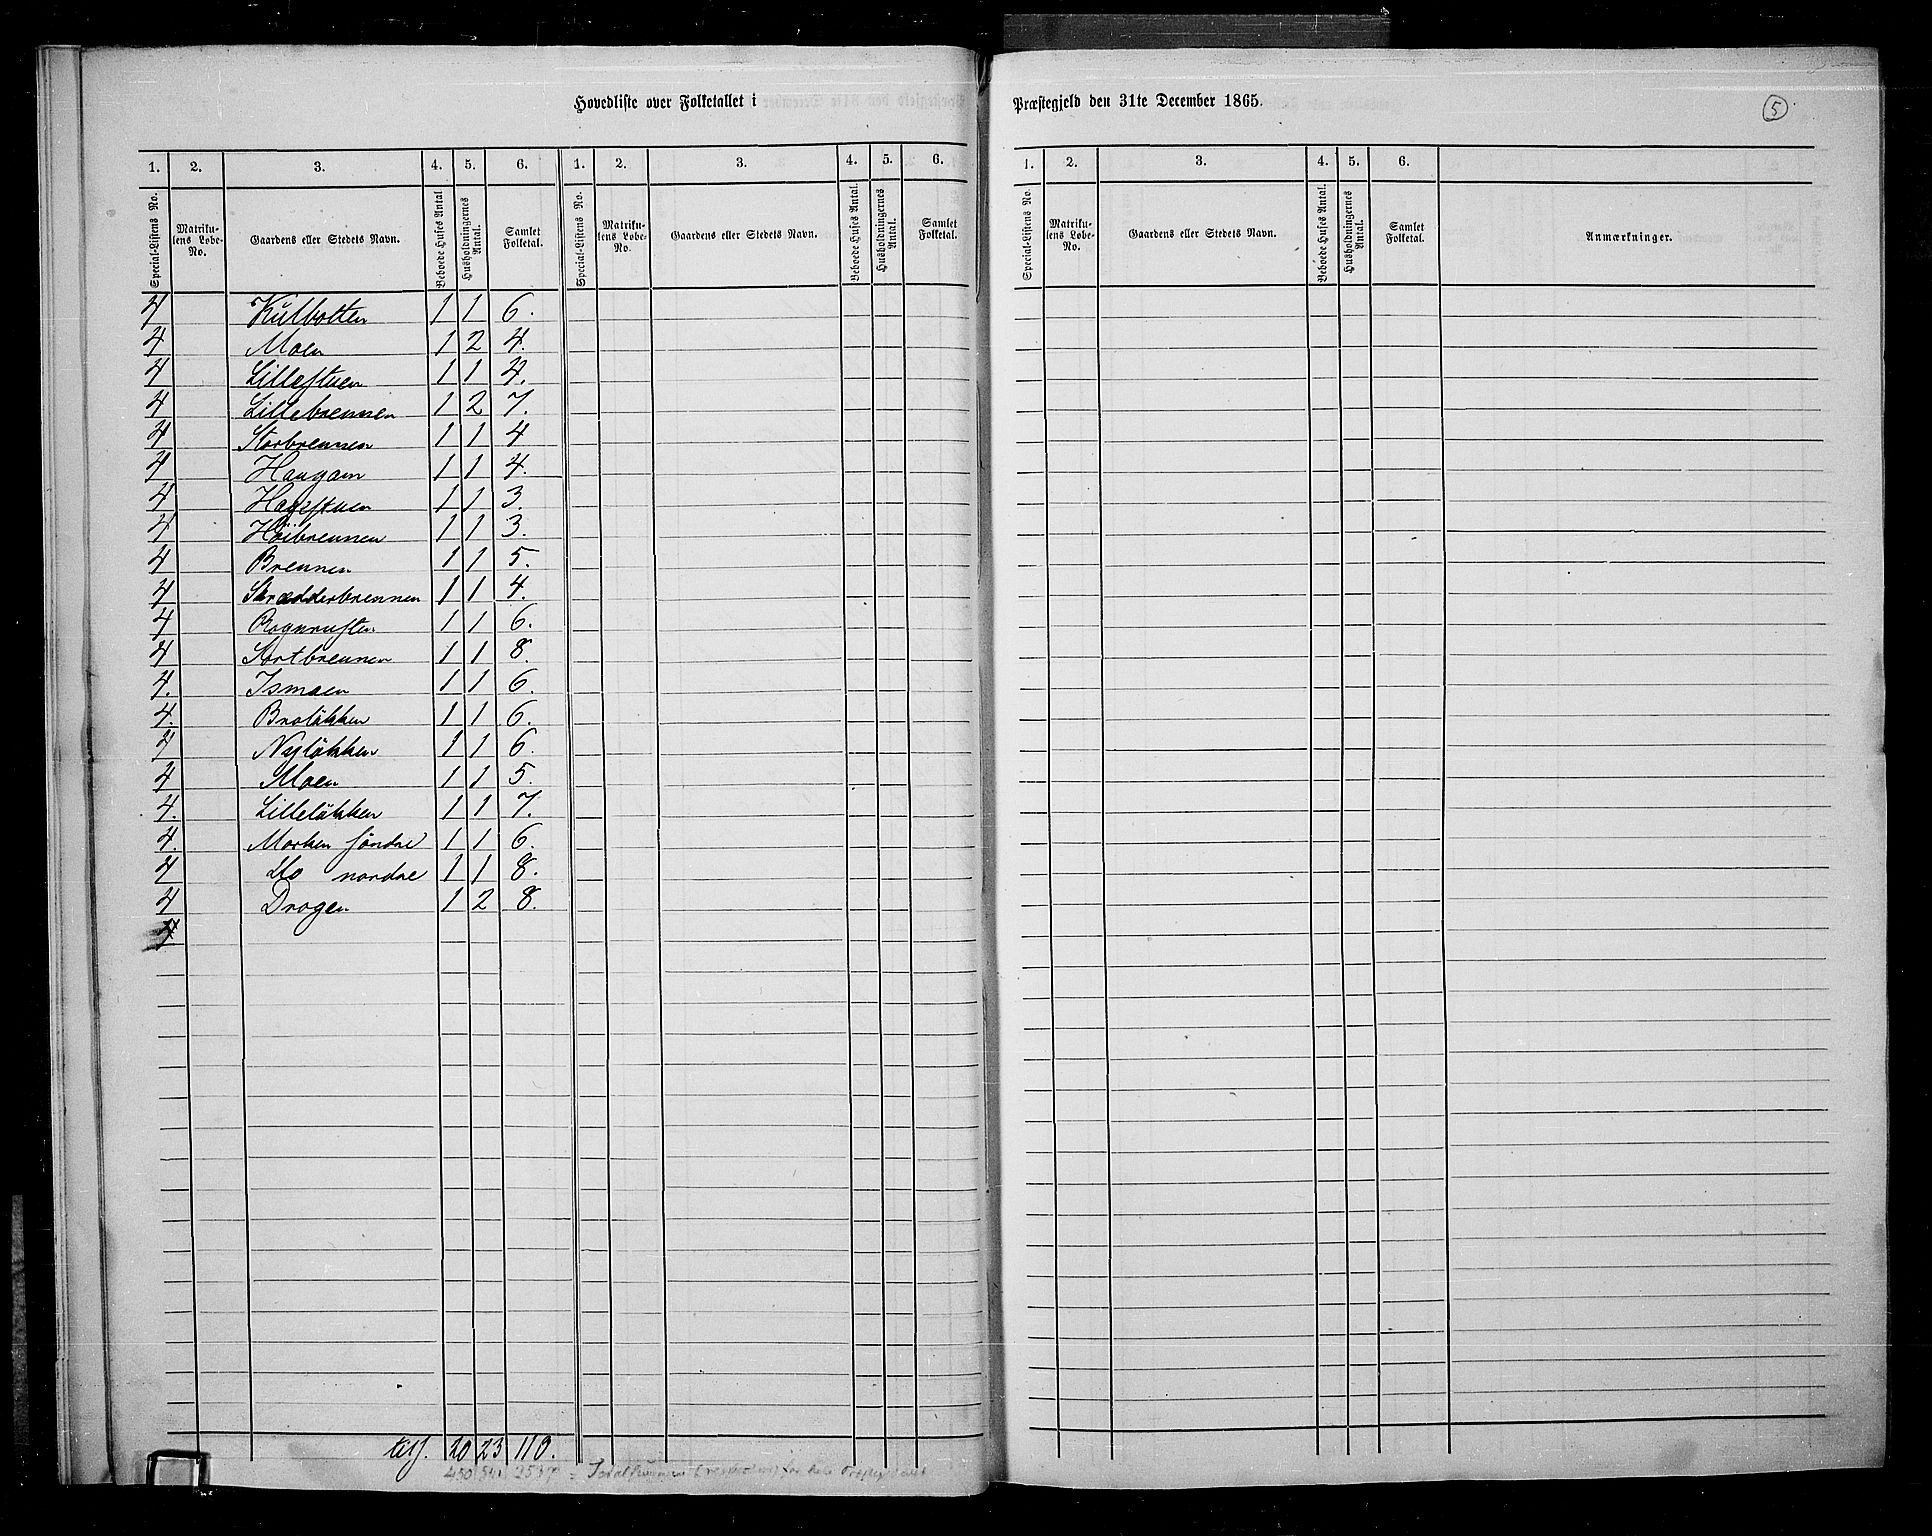 Hovedliste over Folketallet i
Præstegjeld den 31te December 1865.
5
1. 2. 3. 4. 5. 6. 1. 2. 3. 4. 5. 6.
Special-Listens No. Matrikulens Løbe-No. Gaardens eller Stedets Navn. Beboede Huses Antal Husholdningernes Antal. Samlet Folketal. Special-Listens No. Matrikulens Løbe-No. Gaardens eller Stedets Navn. Beboede Huses Antal. Husholdningernes Antal. Samlet Folketal.
1. 2. 3. 4. 5. 6.
Special-Listens No. Matrikulens Løbe-No. Gaardens eller Stedets Navn. Beboede Huses Antal. Husholdningernes Antal. Samlet Folketal. Anmærkninger.
4 Kulbotten 1 1 6.
4 Moen 1 2 4.
4 Lillestuen 1 1 4.
4 Lillebrennen 1 2 7.
4 Storbrennen 1 1 4
4 Haugam 1 1 4.
4 Hagestuen 1 1 3.
4 Höibrennen 1 1 3.
4 Brennen 1 1 5.
4 Skrædderbrennen 1 1 4.
4 Rognrusten 1 1 6.
4 Sortbrennen 1 1 8.
4. Ismoen 1 1 6.
4. Brolökken 1 1 6.
4 Nylökken 1 1 6.
4 Moen 1 1 5.
4. Lillelökken 1 1 7.
4. Morken söndre 1 1 6.
4 do nordre 1 1 8.
4 Drogen 1 2 8.
4
20 23 110.
450 541 2537 =